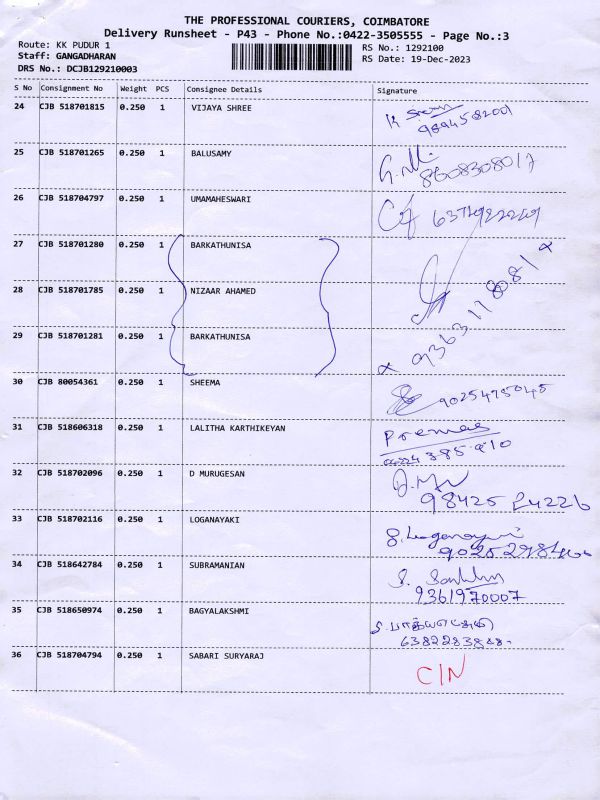 THE PROFESSIONAL COURIERS, COIMBATORE
Delivery Runsheet - P43 - Phone No.:0422-3505555 - Page No.:3
Route: KK PUDUR 1 RS No.: 1292100
Staff: GANGADHARAN RS Date: 19-Dec-2023
DRS No.: DCJB129210003
S No Consignment No Weight PCS Consignee Details Signature
24 CJB 518701815 0.250 1 VIJAYA SHREE
25 CJB 518701265 0.250 1 BALUSAMY
8608308017
26 CJB 518704797 0.250 1 UMAMAHESWARI
27 CJB 518701280 0.250 1 BARKATHUNISA
28 CJB 518701785 0.250 1 NIZAAR AHAMED
29 CJB 518701281 0.250 1 BARKATHUNISA
30 CJB 80054361 0.250 1 SHEEMA
9025475045
31 CJB 518606318 0.250 1 LALITHA KARTHIKEYAN
32 CJB 518702096 0.250 1 D MURUGESAN
98425 24226
33 CJB 518702116 0.250 1 LOGANAYAKI
34 CJB 518642784 0.250 1 SUBRAMANIAN
9361970007
35 CJB 518650974 0.250 1 BAGYALAKSHMI
36 CJB 518704794 0.250 1 SABARI SURYARAJ
C/N